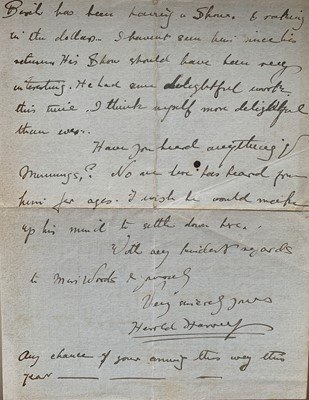 Birch has been having a Show. & raking
in the dollars. I havent seen him since his
return. His Show should have been very
interesting. He had some delightful work
this time. I think myself more delightful
than ever.
Have you heard anything of
Munnings,? No one here has heard from
him for ages. I wish he would make
up his mind to settle down here.
With very kindest regards
to Miss Woods & yourself
Very sincerely yours
Harold Harvey
Any chance of your coming this way this
year